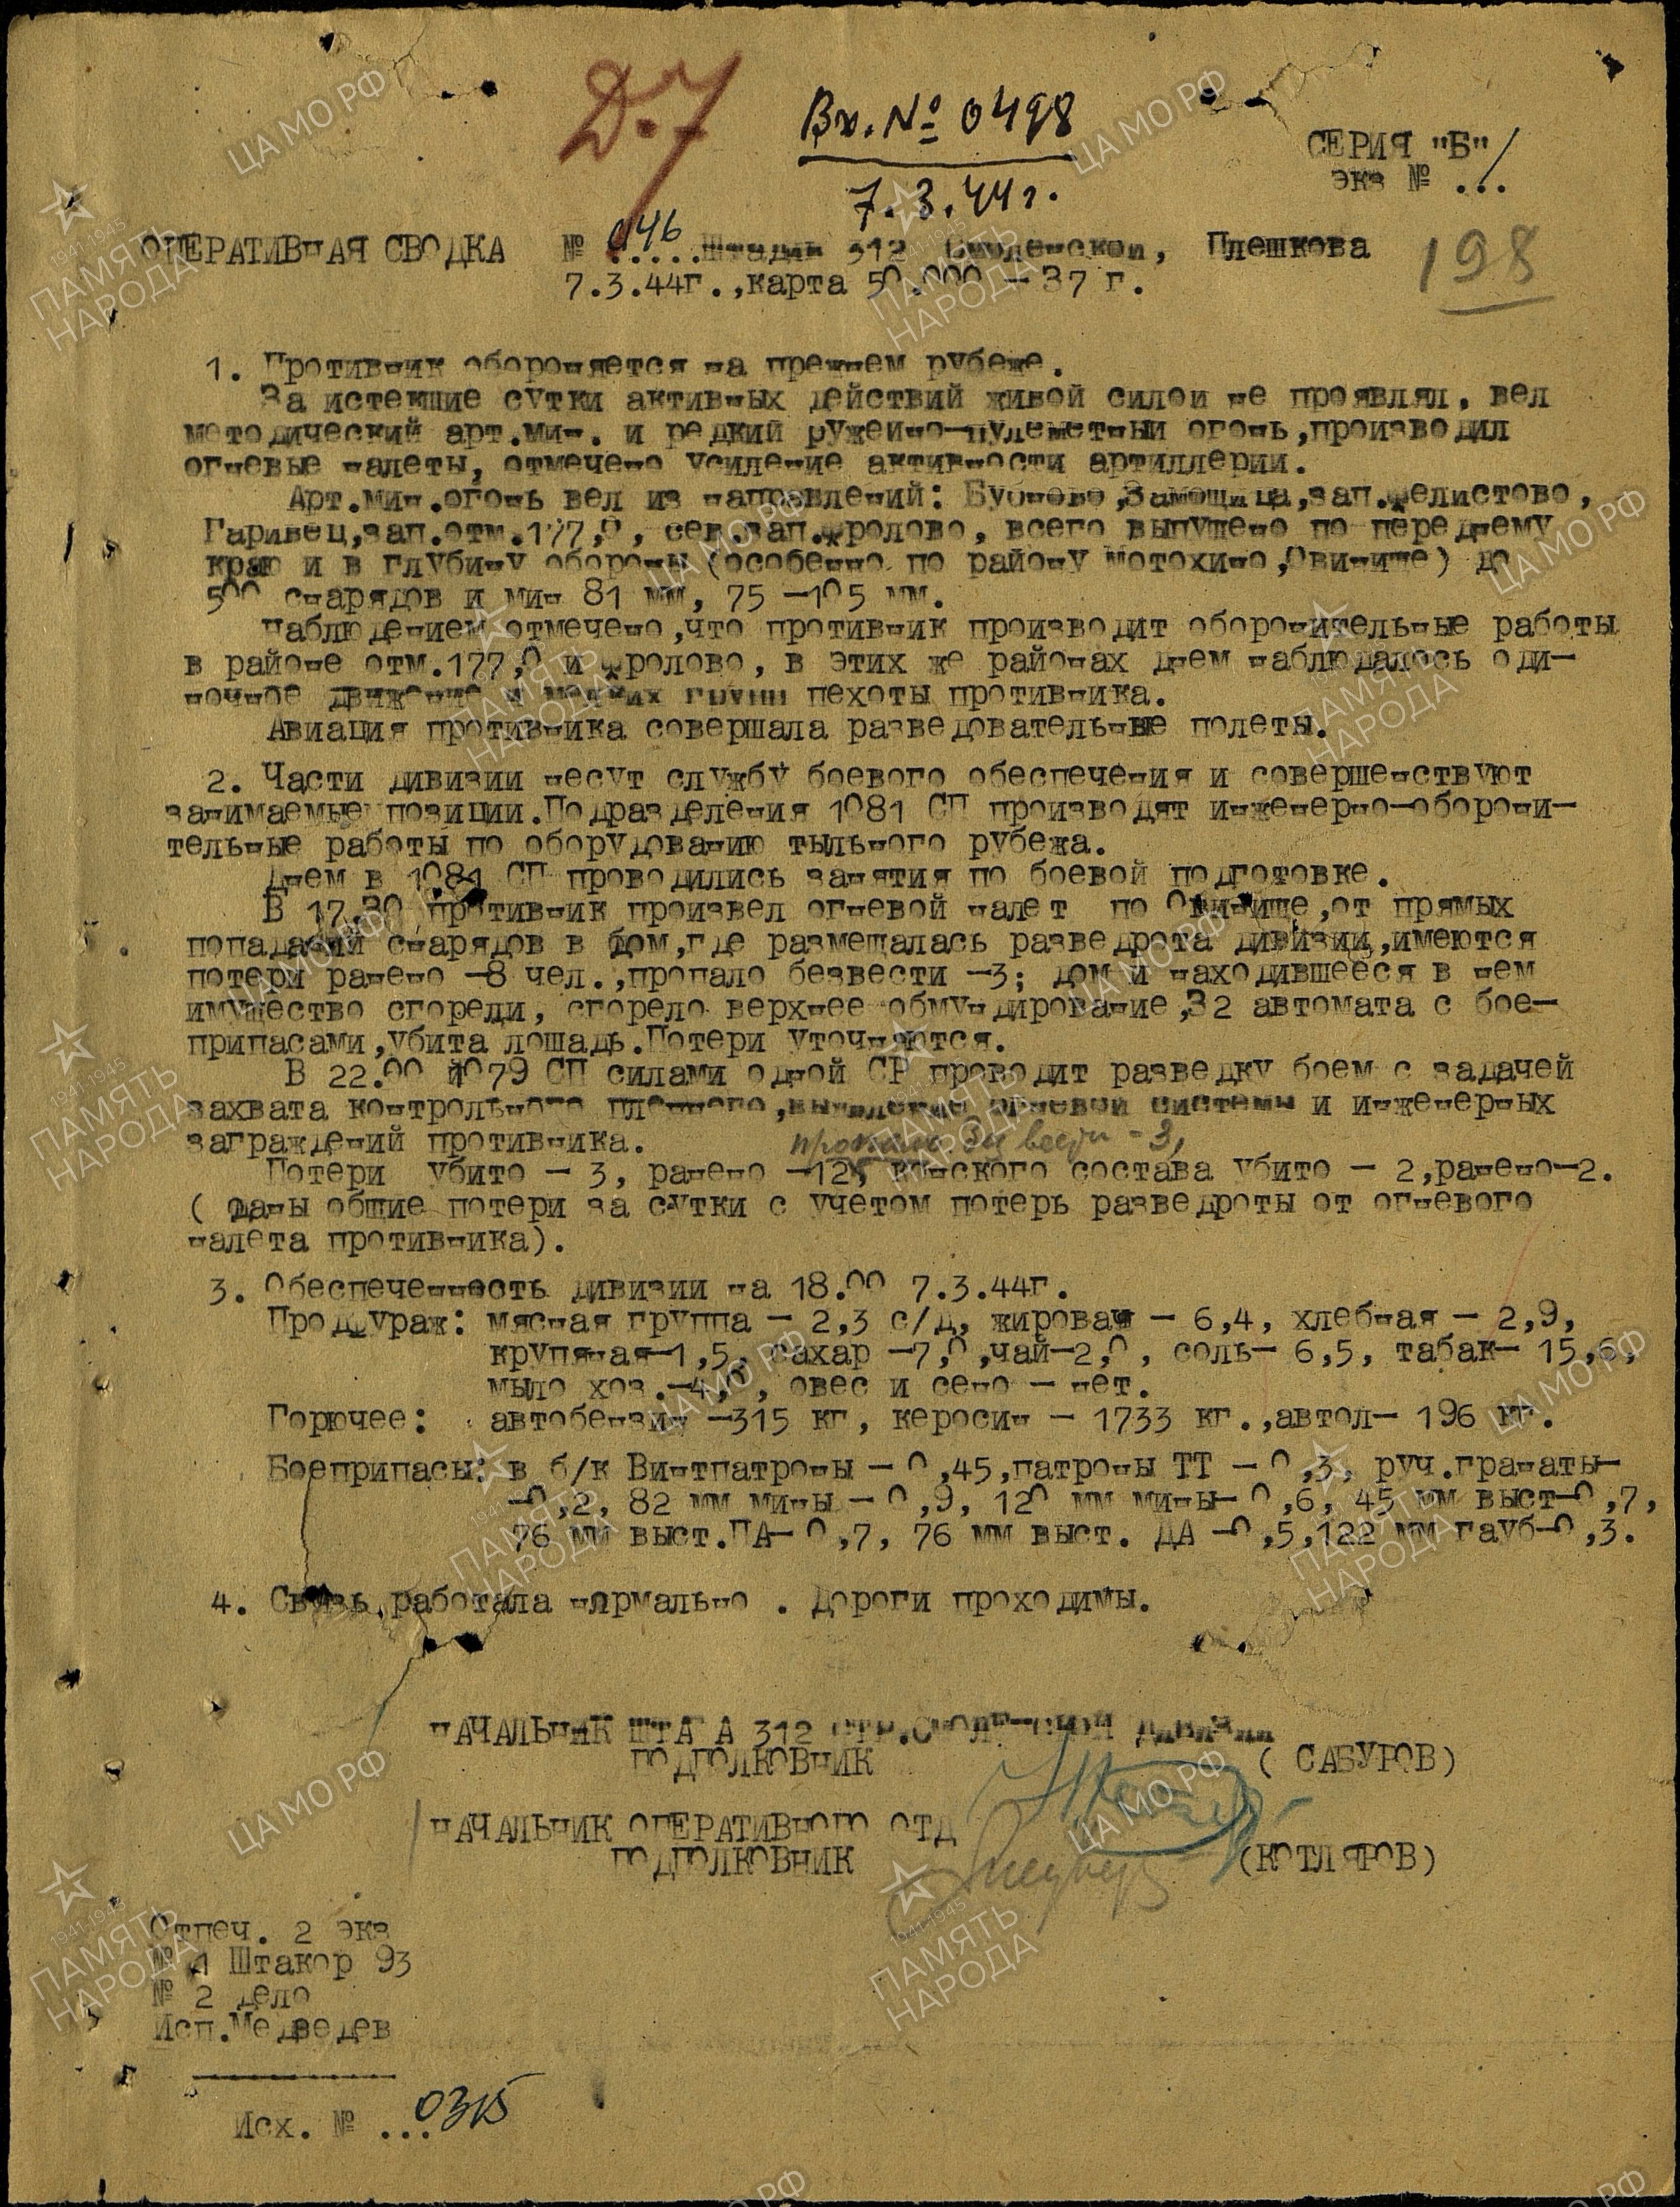 Д.7
Вх. № 0498
7.3.44г.
СЕРИЯ "Б"
экз № ...
ОПЕРАТИВНАЯ СВОДКА № 046 Штадив 312 Смоленской, Плешкова
7.3.44г.,карта 50.000 - 37 г.
198
1. Противник обороняется на прежнем рубеже.
За истекшие сутки активных действий живой силои не проявлял, вел
методический арт.мин. и редкий ружейно-пулеметный огонь,производил
огневые налеты, отмечено усиление активности артиллерии.
Арт.мин.огонь вел из направлений: Бубново,Замощица,зап.Фелистово,
Гаривец,зап.отм.177,0, сев.зап.Фролово, всего выпущено по переднему
краю и в глубину обороны (особенно по району Мотохино,Овинище) до
500 снарядов и мин 81 мм, 75 -105 мм.
Наблюдением отмечено,что противник производит оборонительные работы
в районе отм.177,0 и Фролово, в этих же районах днем наблюдалось оди-
ночное движение и мелких групп пехоты противника.
Авиация противника совершала разведовательные полеты.
2. Части дивизии несут службу боевого обеспечения и совершенствуют
занимаемые позиции.Подразделения 1081 СП производят инженерно-оборони-
тельные работы по оборудованию тыльного рубежа.
Днем в 1081 СП проводились занятия по боевой подготовке.
В 17.30 противник произвел огневой налет по Овинище,от прямых
попаданий снарядов в дом,где размещалась разведрота дивизии,имеются
потери ранено -8 чел.,пропало безвести -3; дом и находившееся в нем
имущество сгорели, сгорело верхнее обмундирование,32 автомата с бое-
припасами,убита лошадь.Потери уточняются.
В 22.00 1079 СП силами одной СР проводит разведку боем с задачей
захвата контрольного пленного,выявление огневой системы и инженерных
заграждений противника.
пропало без вести - 3,
Потери убито - 3, ранено -12, конского состава убито - 2,ранено-2.
( даны общие потери за сутки с учетом потерь разведроты от огневого
налета противника).
3. Обеспеченность дивизии на 18.00 7.3.44г.
Продфураж: мясная группа - 2,3 с/д, жировая - 6,4, хлебная - 2,9,
крупяная-1,5, сахар -7,0,чай-2,0, соль- 6,5, табак- 15,6,
мыло хоз.-4,0, овес и сено - нет.
Горючее: автобензин -315 кг, керосин - 1733 кг.,автол- 196 кг.
Боеприпасы: в б/к Винтпатроны - 0,45,патроны ТТ - 0,3, руч.гранаты-
-0,2, 82 мм мины - 0,9, 120 мм мины- 0,6, 45 мм выст-0,7,
76 мм выст.ПА- 0,7, 76 мм выст. ДА -0,5,122 мм гауб-0,3.
4. Связь работала нормально . Дороги проходимы.
НАЧАЛЬНИК ШТАБА 312 СТР.Смоленской дивизии
ПОДПОЛКОВНИК ( САБУРОВ)
НАЧАЛЬНИК ОПЕРАТИВНОГО ОТД
ПОДПОЛКОВНИК (КОТЛЯРОВ)
Отпеч. 2 экз
№ 1 Штакор 93
№ 2 дело
Исп.Медведев
Исх. № ...0315